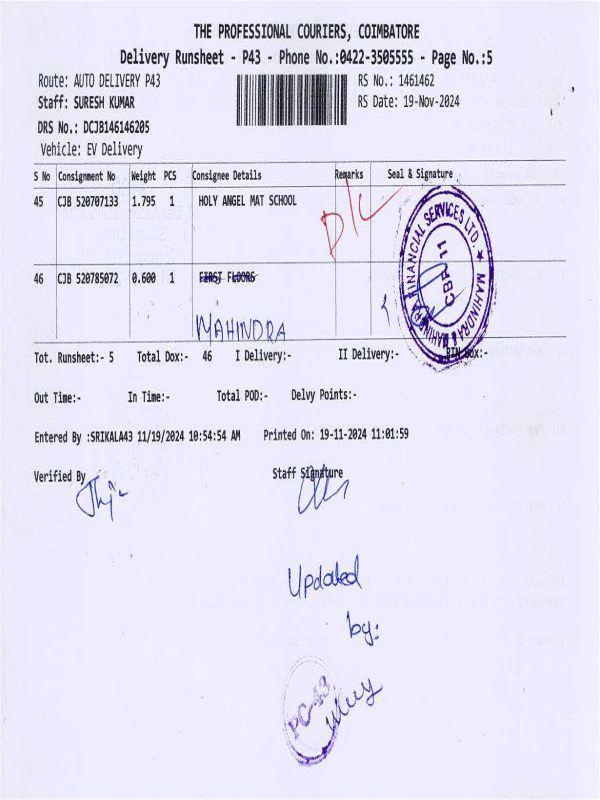 THE PROFESSIONAL COURIERS, COIMBATORE
Delivery Runsheet - P43 - Phone No.:0422-3505555 - Page No.:5
Route: AUTO DELIVERY P43
RS No.: 1461462
Staff: SURESH KUMAR
RS Date: 19-Nov-2024
DRS No.: DCJB146146205
Vehicle: EV Delivery
S No Consignment No Weight PCS Consignee Details Remarks Seal & Signature
45 CJB 520707133 1.795 1 HOLY ANGEL MAT SCHOOL D/L
MAHINDRA & MAHINDRA FINANCIAL SERVICES LTD. ★
46 CJB 520785072 0.600 1 FIRST FLOORS
MAHINDRA
Tot. Runsheet:- 5 Total Dox:- 46 I Delivery:- II Delivery:- PIN Dox:-
Out Time:- In Time:- Total POD:- Delvy Points:-
Entered By :SRIKALA43 11/19/2024 10:54:54 AM Printed On: 19-11-2024 11:01:59
Verified By Staff Signature
Updated
by:
PC-43